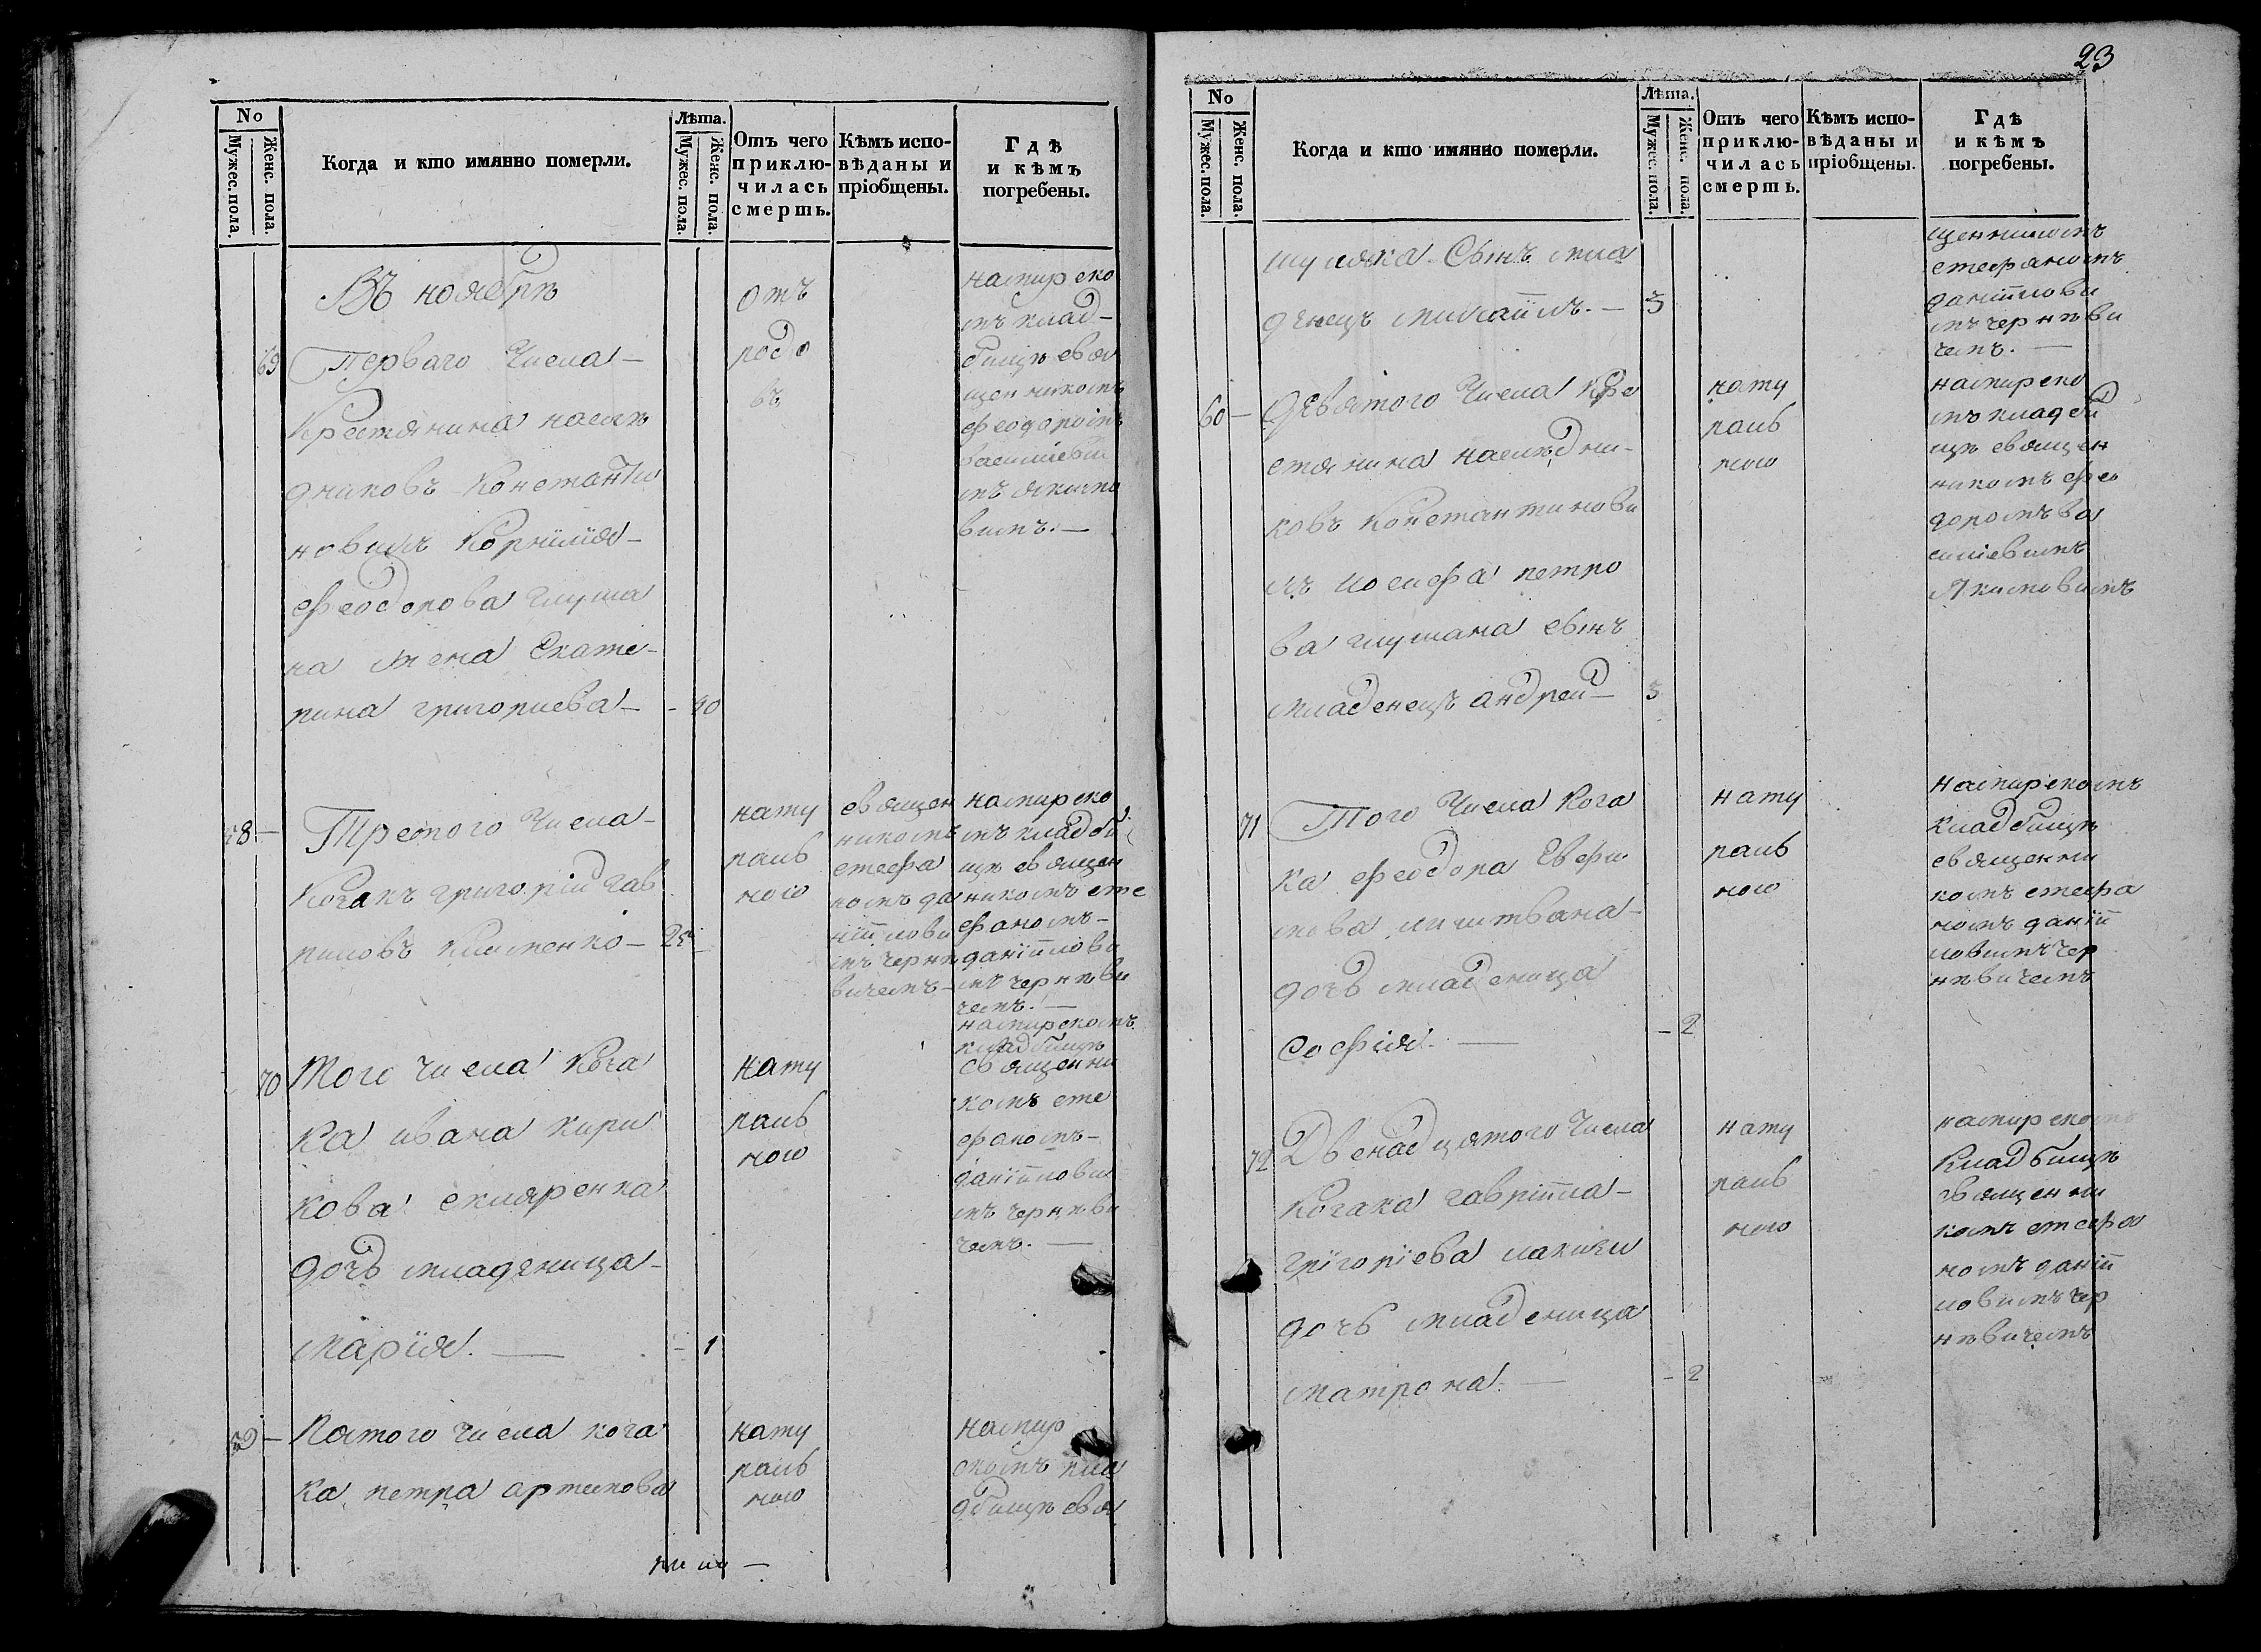 No
Мужес. пола.
Женс. пола.
Когда и кто имянно померли.
Лѣта.
Мужес. пола.
Женс. пола.
Отъ чего
приклю-
чилась
смерть.
Кѣмъ испо-
вѣданы и
пріобщены.
Гдѣ
и кѣмъ
погребены.
Въ ноябрѣ
69
Перваго числа
Крестянина наслѣ
дниковъ Константи
новихъ Корнилія
Феодорова глуша
ка жена Екате-
рина григориева - 40
отъ
родо
въ
на мирско
мъ клад-
бищѣ свя
щенникомъ
феодоромъ
василіеви
мъ якимо
вимъ. —
58 —
Третого числа
Козакъ григорій гав
риловъ Клименко — 25
нату
раль
ного
священ
никомъ
стефа
номъ да
ніилови
мъ чернѣ
вичемъ —
на мирско
мъ кладби
щѣ священ
никомъ сте
фаномъ —
даніилови
мъ чернѣви
чемъ. —
70
Того числа Коза
ка ивана кири
кова скляренка
дочь младеница
марія. — - 1
нату
раль
ного
на мирскомъ
кладбищѣ
священни
комъ сте
фаномъ —
даніилови
мъ чернѣви
чемъ. —
59 —
Пятого числа коза
ка петра артемова
нату
раль
ного
на мир
скомъ кла
дбищѣ свя
23
No
Мужес. пола.
Женс. пола.
Когда и кто имянно померли.
Лѣта.
Мужес. пола.
Женс. пола.
Отъ чего
приклю-
чилась
смерть.
Кѣмъ испо-
вѣданы и
пріобщены.
Гдѣ
и кѣмъ
погребены.
шуляка Сынъ мла
денецъ михаилъ. — 3
щенникомъ
стефаномъ
даніилови
мъ чернѣви
чемъ. —
60 —
Девятого числа Кре
стянина наслѣдни-
ковъ Константинови
хъ иосифа петро
ва глушака сынъ
младенецъ андрей — 3
нату
раль
ного
на мирско
мъ кладби
щѣ священ
никомъ фео
доромъ ва
силіевимъ
Якимовимъ
71
Того числа Коза
ка феодора Евфи
мова литвана
дочь младеница
софія. — - 2
нату
раль
ного
на мирскомъ
кладбищѣ
священни
комъ стефа
номъ даніи
ловимъ чер
нѣвичемъ
72
Двенадцятого числа
Козака гавріила
грігоріева
дочь младеница
матрона. — - 2
нату
раль
ного
на мирскомъ
Кладбищѣ
священни
комъ стефа
номъ даніи
ловимъ чер
нѣвичемъ